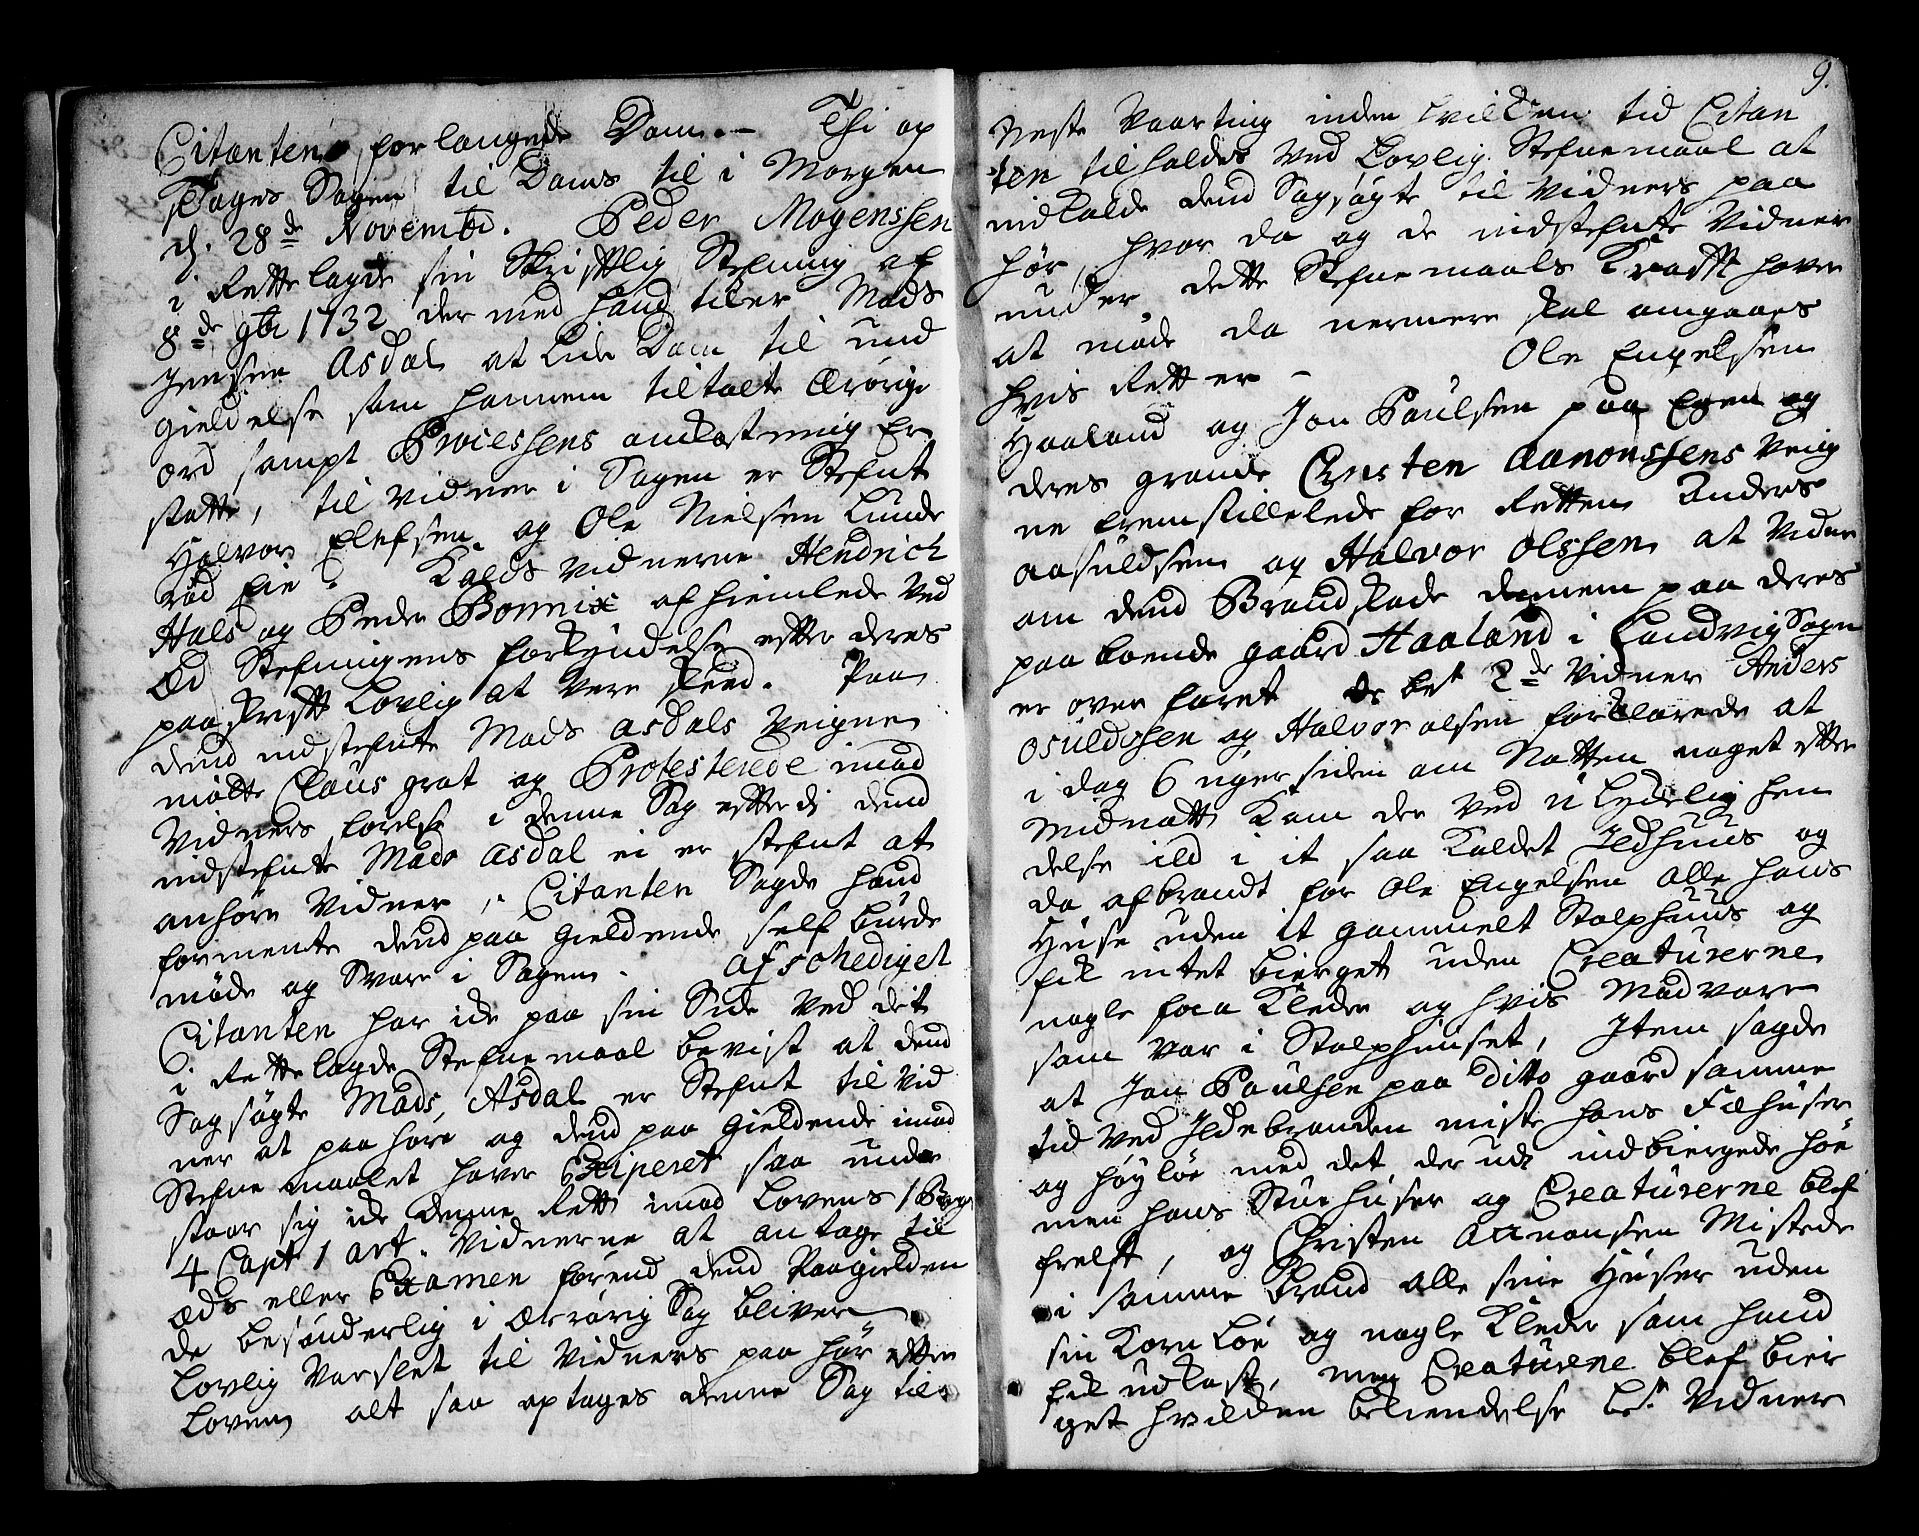 Citanten forlangede Dom. – Thi op
tages Sagen til Doms til i Morgen
d. 28de Novembr. Peder Mogenssen
i Rettelagde sin Skrifttlig Stefning af
8de 9br 1732 der med hand tiler Mads
Jenssen Asdal at lide Dom til und
gieldelse som hannem tiltalte Ærørige
ord sampt Processens omkostning Er
statte, til vidner i Sagen er Stefnt
Halvor Elefsen og Ole Nielsen Lunde
rød Eie. Kalds vidnerne Hendrich
Hals og Peder Bonnix afhiemlede ved
Æd Stefningens forkyndelse efter deres
paaskrifft Lovlig at vere skeed. Paa
dend indstefnte Mads Asdals veigne
mødte Claus grot og Protesterede imod
vidners førelse i denne Sag efftterdj dend
indstefnte Mads Asdal ei er stefnt at
anhøre vidner, Citanten Sagde hand
formente dend paagieldende self burde
møde og svare i Sagen. Afschediget
Citanten har icke paa sin Side ved det
i Rettelagde Stefnemaal bevist at dend
Sagsøgte Mads Asdal er Stefnt til vid
ner at paahøre og dend paagieldende imod
Stefnemaalet haver Exiperet saa under
staar sig icke denne Rett imod Lovens 1 Bogs
4 Capt 1 art. vidnerne at antage til
æds eller Examen førend dend Paagielden
de besønderlig i Ærrørig Sag bliver
Lovlig varslet til vidners paahør efter
Loven alt saa optages denne Sag til
9.
neste Vaarting inden hvilken tid Citan
ten tilholdes ved Lovlig Stefnemaal at
indkalde dend Sagsøgte til vidners paa
hør, hvor da og de indstefnte vidner
under dette Stefnemaals Krafft haver
at møde da nermere skal omgaaes
hvis Rett er – Ole Engelsen
Haaland og Jon Paulsen paa Egen og
deres grande Christen Aanonssens veig
ne fremstillelede for Retten Anders
Aasuldsen og Halvor Olssen at vidne
om dend Brandskade dennem paa deres
paaboende gaard Haaland i Landvig Sogn
er over faret de bet 2de vidner Anders
Osuldssen og Halvor Olsen forklarede at
i dag 6 uger siden om Natten noget efter
midnatt kom der ved ulydelig hen
delse ild i it saa kaldet Ildhuus og
da afbrandt for Ole Engelsen alle hans
Huse uden it gammelt Stolphuus og
fik intet bierget uden Creaturerne
nogle faa kleder og hvis Madvare
som var i Stolphuuset, Item sagde
at Jon Paulsen paa ditto gaard samme
tid ved Ildebranden miste hans Fæhuser
og høyløe med det der udi indbiergede høe
men hans Stuehuser og Creaturerne blef
frelst, og Christen Aanonsen Mistede
i samme brand alle sine Huser uden
sin Korn løe og nogle kleder som hand
fik udkast, men Creaturene blef bier
get hvilken hendelse bt. vidner